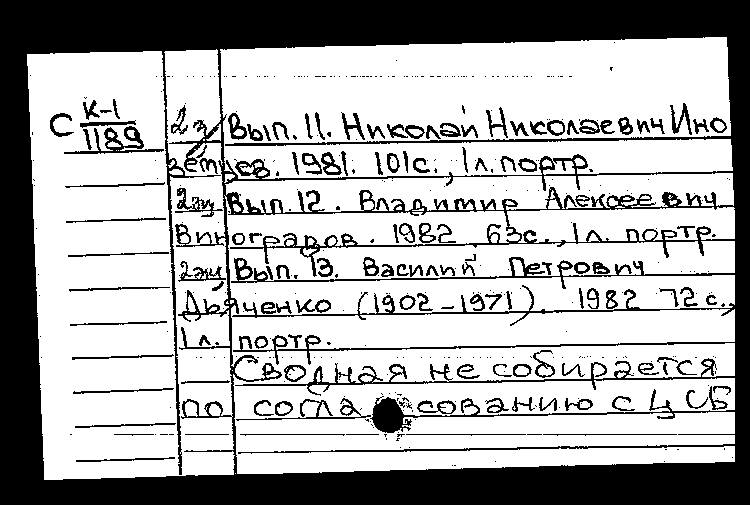 С К-1/1189
2 э Вып. 11. Николай Николаевич Ино
земцев. 1981. 101с., 1л. портр.
2эц Вып. 12. Владимир Алексеевич
Виноградов. 1982 63с., 1л. портр.
2эц Вып. 13. Василий Петрович
Дьяченко (1902-1971). 1982 72с.,
1 л. портр.
Сводная не собирается
по согласованию с ЦСБ